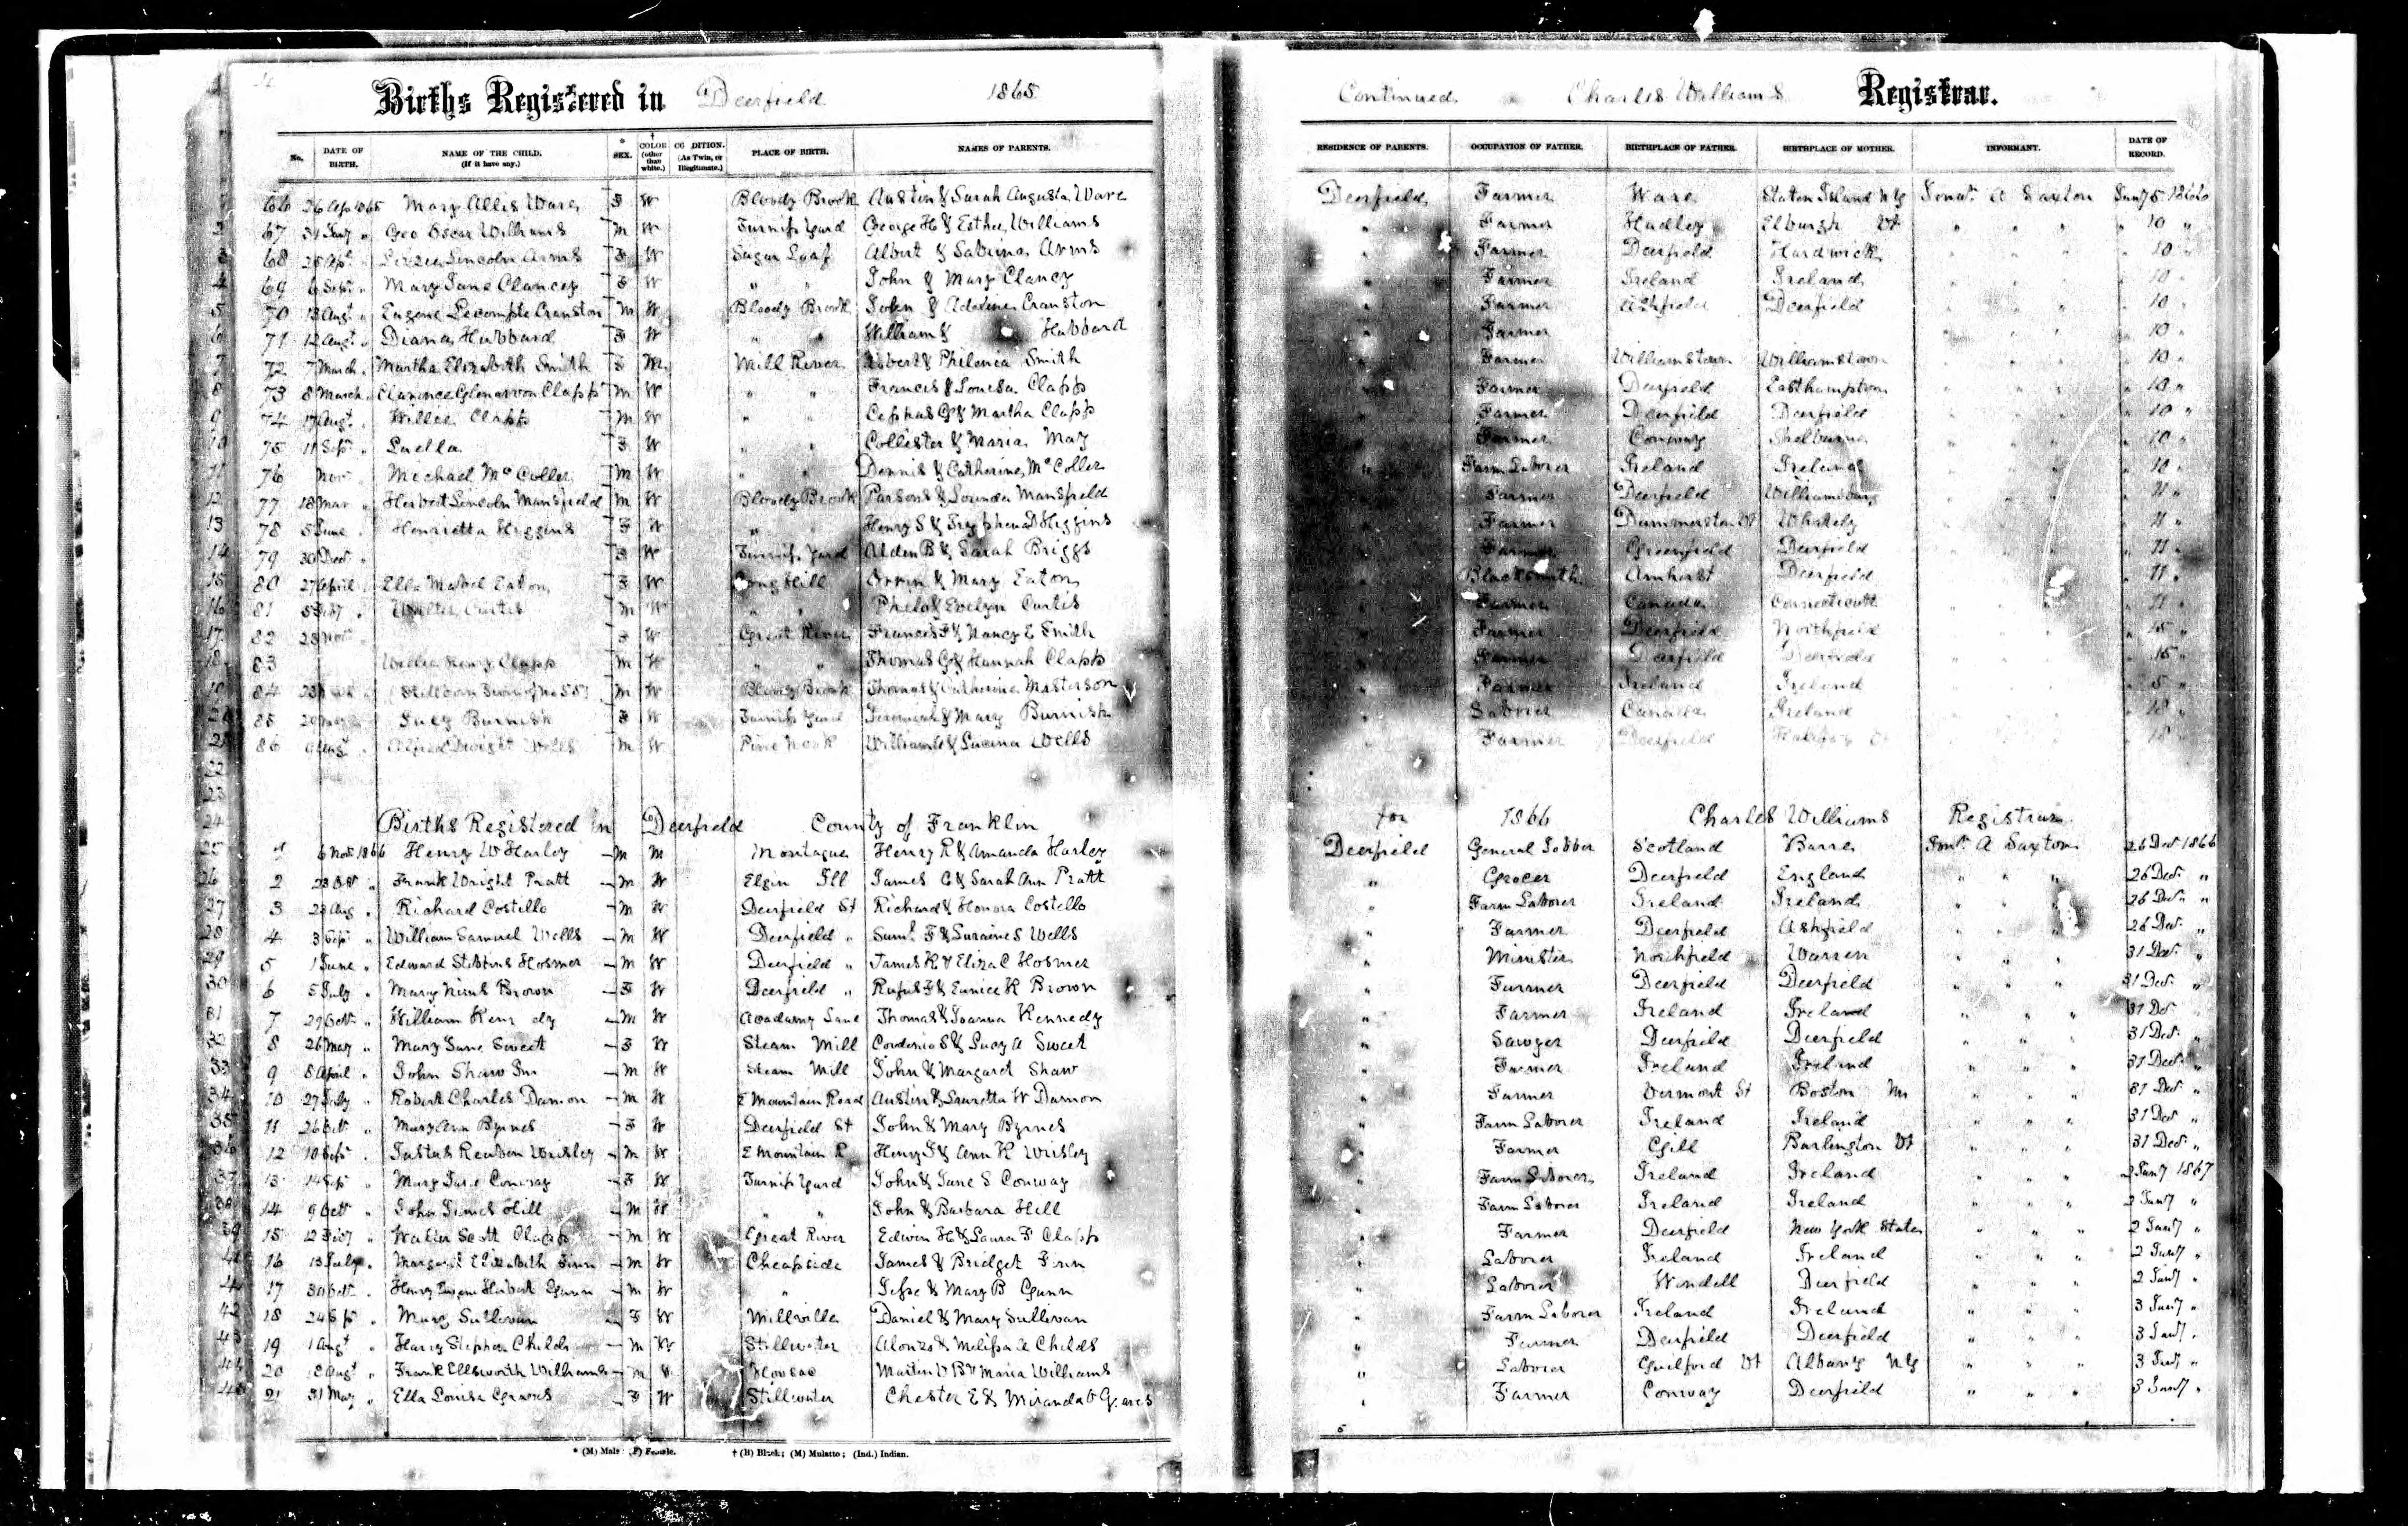 Births Registered in Deerfield 1865 Continued Charles Williams Registrar.
No. DATE OF BIRTH. NAME OF THE CHILD. (If it have any.) * SEX. † COLOR (other than white.) CO DITION. (As Twin, or Illegitimate.) PLACE OF BIRTH. NAMES OF PARENTS. RESIDENCE OF PARENTS. OCCUPATION OF FATHER. BIRTHPLACE OF FATHER. BIRTHPLACE OF MOTHER. INFORMANT. DATE OF RECORD.
66 26 1865 Mary Allis Ware F W Bloody Brook Austin & Sarah Augusta Ware Deerfield Farmer Ware Staten Island NY A Saxton Jany 5 1866
2 67 31 Jany " Geo Oscar Williams M W Turnip Yard George H & Esther Williams " Farmer Hadley Vt " " " " 10 "
3 68 25 " Lizzie Lincoln Arms F W Sugar Loaf Albert & Sabrina Arms " Farmer Deerfield Hardwick " " " " 10 "
4 69 Sept " Mary Jane Clancey F W " " John & Mary Clancy " Farmer Ireland Ireland " " " " 10 "
5 70 13 Augt " Eugene Lecompte Cranston M W Bloody Brook John & Adeline Cranston " Farmer Ashfield Deerfield " " " " 10 "
6 71 12 Augt " Diana Hubbard F W " " William & Hubbard " Farmer " " " " 10 "
7 72 7 March " Martha Elizabeth Smith F M Mill River Robert & Philenia Smith " Farmer Williamstown Williamstown " " " " 10 "
8 73 8 March " Clarence Clapp M W " " Francis & Louisa Clapp " Farmer Deerfield Easthampton " " " " 10 "
9 74 17 Augt " Willie Clapp M W " " Cephas G & Martha Clapp " Farmer Deerfield Deerfield " " " " 10 "
10 75 11 Sept " Luella F W " " Collister & Maria May " Farmer Conway Shelburne " " " " 10 "
11 76 Nov " Michael Mc Coller M W " " Dennis & Catherine Mc Coller " Farm Laborer Ireland Ireland " " " " 10 "
12 77 18 Mar " Herbert Lincoln Mansfield M W Bloody Brook Parsons & Mansfield " Farmer Deerfield Williamsburg " " " " 11 "
13 78 5 June " Henrietta Higgins F W " " Henry S & Higgins " Farmer Dummerston Vt Whately " " " " 11 "
14 79 30 Dec " F W Turnip Yard Alden B & Sarah Briggs " Farmer Greenfield Deerfield " " " " 11 "
15 80 27 April " Ella Mabel Eaton F W Long Hill Orrin & Mary Eaton " Blacksmith Amherst Deerfield " " " " 11 "
16 81 5 " Walter Curtis M W " " Philo & Evelyn Curtis " Farmer Canada Connecticutt " " " " 11 "
17 82 23 Nov " F W Great River Francis F & Nancy E Smith " Farmer Deerfield Northfield " " " " 15 "
18 83 Willie Henry Clapp M W " " Thomas G & Hannah Clapp " Farmer Deerfield Deerfield " " " " 15 "
84 (Stillborn Twin of No 58) M W Bloody Brook Thomas & Catherine Masterson " Farmer Ireland Ireland " " " "
85 20 May " Burnish F W Turnip Yard Jeremiah & Mary Burnish " Laborer Canada Ireland " " " " 18 "
86 Augt " Alfred Dwight Wells M W Pine Nook William & Lucina Wells " Farmer Deerfield Halifax " " " " 18 "
22
23
24 Births Registered in Deerfield County of Franklin for 1866 Charles Williams Registrar
25 1 6 Nov 1866 Henry W Harley M M Montague Henry R & Amanda Harley Deerfield General Jobber Scotland Barre A Saxton 26 Dec 1866
26 2 23 Oct " Frank Wright Pratt M W Elgin Ill James C & Sarah Ann Pratt " Grocer Deerfield England " " " 26 Dec "
27 3 23 Aug " Richard Costello M W Deerfield St Richard & Honora Costello " Farm Laborer Ireland Ireland " " " 26 Dec "
28 4 3 Sept " William Samuel Wells M W Deerfield " Saml F & S Wells " Farmer Deerfield Ashfield " " " 26 Dec "
29 5 1 June " Edward Stebbins Hosmer M W Deerfield " James K & Eliza C Hosmer " Minister Northfield Warren " " " 31 Dec "
30 6 5 July " Mary Nims Brown F W Deerfield " Rufus F & Eunice K Brown " Farmer Deerfield Deerfield " " " 31 Dec "
31 7 29 Oct " William Kennedy M W Academy Lane Thomas & Joanna Kennedy " Farmer Ireland Ireland " " " 31 Dec "
32 8 26 May " Mary Jane Sweet F W Steam Mill S & Lucy A Sweet " Sawyer Deerfield Deerfield " " " 31 Dec "
33 9 8 April " John Shaw Jnr M W Steam Mill John & Margaret Shaw " Farmer Ireland Ireland " " " 31 Dec "
34 10 27 July " Robert Charles Damon M W E Mountain Road Austin & Lauretta W Damon " Farmer Vermont St Boston Ms " " " 31 Dec "
35 11 26 Oct " Mary Ann Byrnes F W Deerfield St John & Mary Byrnes " Farm Laborer Ireland Ireland " " " 31 Dec "
36 12 10 Sept " Justus Reuben Wrisley M W E Mountain R Henry J & Ann K Wrisley " Farmer Gill Burlington Vt " " " 31 Dec "
37 13 14 Sept " Mary Jane Conway F W Turnip Yard John & Jane S Conway " Farm Laborer Ireland Ireland " " " 2 Jany 1867
38 14 9 Oct " John James Hill M W " " John & Barbara Hill " Farm Laborer Ireland Ireland " " " 2 Jany "
39 15 12 " Walter Scott Clapp M W Great River Edwin H & Laura F Clapp " Farmer Deerfield New York State " " " 2 Jany "
16 13 July " Margaret Elizabeth Finn M W Cheapside James & Bridget Finn " Laborer Ireland Ireland " " " 2 Jany "
17 30 Oct " Henry Eugene Herbert Gunn M W " Jesse & Mary B Gunn " Laborer Wendell Deerfield " " " 2 Jany "
42 18 24 Sept " Mary Sullivan F W Millville Daniel & Mary Sullivan " Farm Laborer Ireland Ireland " " " 3 Jany "
43 19 1 Augt " Harry Stephen Childs M W Stillwater Alonzo & Melissa A Childs " Farmer Deerfield Deerfield " " " 3 Jany "
44 20 Augt " Frank Ellsworth Williams M W Hoosac Martin V B & Maria Williams " Laborer Guilford Vt Albany NY " " " 3 Jany "
45 21 31 May " Ella Louisa Graves F W Stillwater Chester E & Miranda Graves " Farmer Conway Deerfield " " " 3 Jany "
* (M) Male; (F) Female. † (B) Black; (M) Mulatto; (Ind.) Indian.